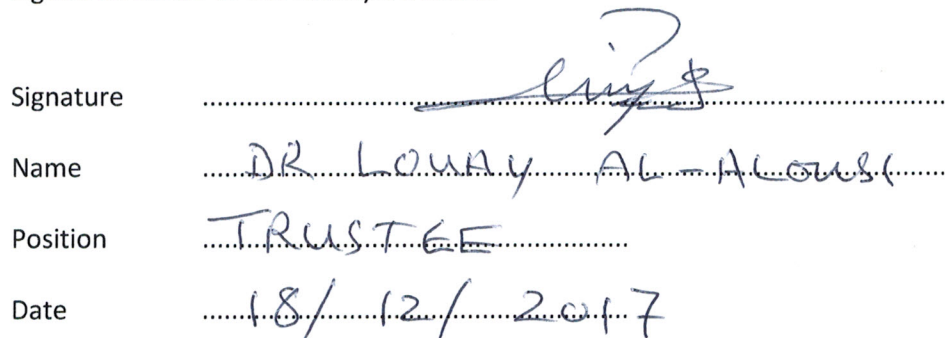 Signature
Name DR LOUAY AL-ALOUSI
Position TRUSTEE
Date 18/12/2017